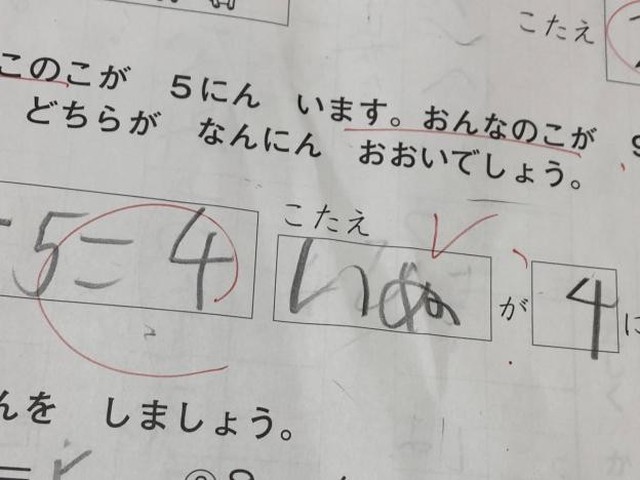 こたえ
このこが 5にん います。おんなのこが 9
どちらが なんにん おおいでしょう。
こたえ
-5=4 いぬ が 4 に
んを しましょう。